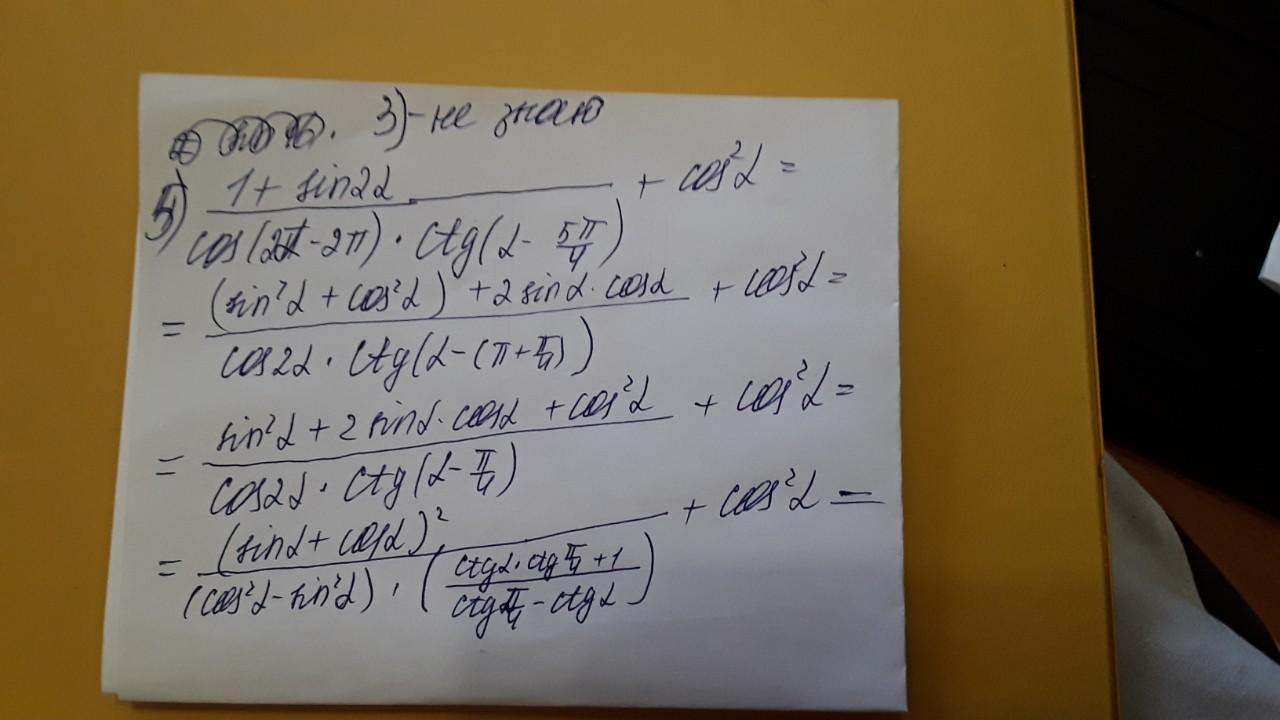 3) - не знаю
5) (1 + sin2α) / (cos(2α - 2π) · ctg(α - 5π/4)) + cos²α =
= ((sin²α + cos²α) + 2 sinα · cosα) / (cos2α · ctg(α - (π + π/4))) + cos²α =
= (sin²α + 2 sinα · cosα + cos²α) / (cos2α · ctg(α - π/4)) + cos²α =
= (sinα + cosα)² / ((cos²α - sin²α) · ((ctgα · ctg π/4 + 1) / (ctg π/4 - ctgα))) + cos²α =